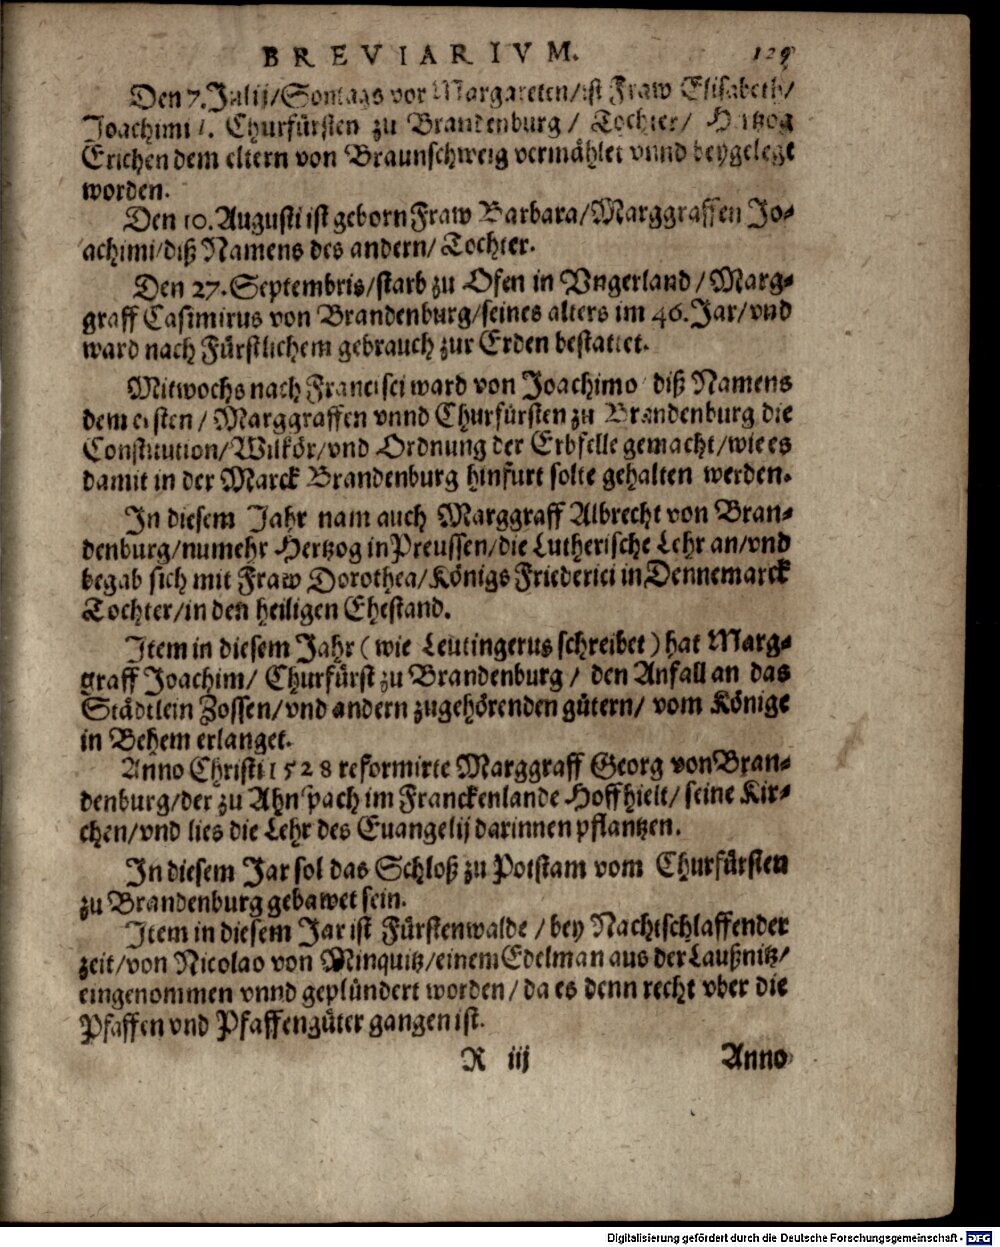 BREVIARIVM. 129
Den 7. Julij/Sontags vor Margareten/ist Fraw Elisabeth/
Joachimi 1. Churfürsten zu Brandenburg/ Tochter/ Hertzog
Erichen dem eltern von Braunschweig vermählet vnnd beygelegt
worden.
Den 10. Augusti ist geborn Fraw Barbara/Marggraffen Jo⸗
achimi/diß Namens des andern/ Tochter.
Den 27. Septembris/starb zu Ofen in Vngerland/Marg⸗
graff Casimirus von Brandenburg/seines alters im 46. Jar/vnd
ward nach Fürstlichem gebrauch zur Erden bestattet.
Mitwochs nach Francisci ward von Joachimo diß Namens
dem ersten/ Marggraffen vnnd Churfürsten zu Brandenburg die
Constitution/Wilkör/vnd Ordnung der Erbfelle gemacht/wie es
damit in der Marck Brandenburg hinfurt solte gehalten werden.
In diesem Jahr nam auch Marggraff Albrecht von Bran⸗
denburg/numehr Hertzog in Preussen/die Lutherische Lehr an/vnd
begab sich mit Fraw Dorothea/Königs Friederici in Dennemarck
Tochter/in den heiligen Ehestand.
Item in diesem Jahr (wie Leutingerus schreibet) hat Marg⸗
graff Joachim/ Churfürst zu Brandenburg/ den Anfall an das
Städtlein Zossen/vnd andern zugehörenden gütern/ vom Könige
in Behem erlanget.
Anno Christi 1528 reformirte Marggraff Georg von Bran⸗
denburg/der zu Ahnspach im Franckenlande Hoff hielt/ seine Kir⸗
chen/vnd lies die Lehr des Euangelij darinnen pflantzen.
In diesem Jar sol das Schloß zu Potstam vom Churfürsten
zu Brandenburg gebawet sein.
Item in diesem Jar ist Fürstenwalde/ bey Nachtschlaffender
zeit/von Nicolao von Minquitz/einem Edelman aus der Laußnitz/
eingenommen vnnd geplündert worden/ da es denn recht vber die
Pfaffen vnd Pfaffengüter gangen ist.
R iij Anno
Digitalisierung gefördert durch die Deutsche Forschungsgemeinschaft - DFG